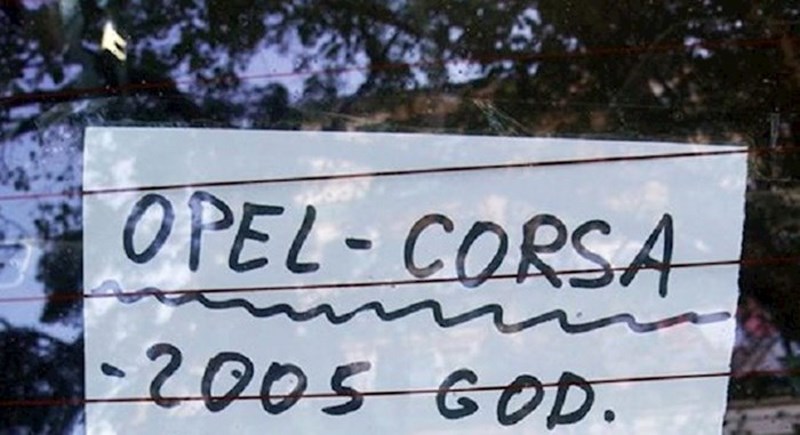 OPEL-CORSA
-2005 GOD.